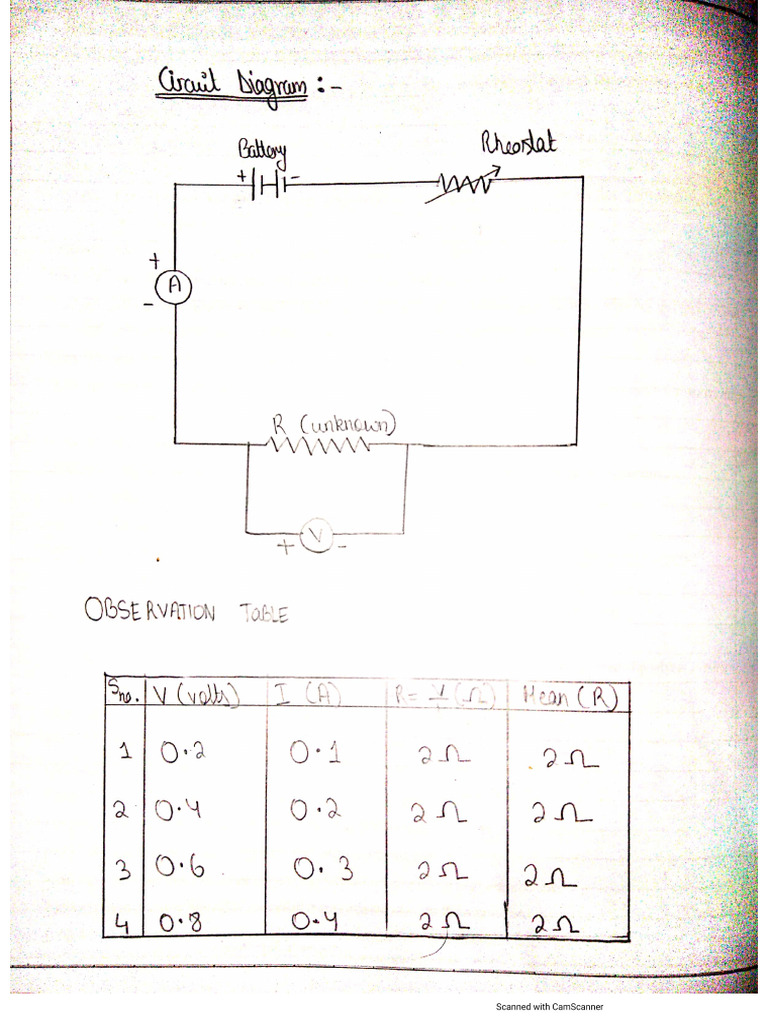 Circuit Diagram :-
Battery
Rheostat
+ -
+
A
-
R (unknown)
+ V -
OBSERVATION TABLE
Sno. V (volts) I (A) R = V/I (Ω) Mean (R)
1 0.2 0.1 2Ω 2Ω
2 0.4 0.2 2Ω 2Ω
3 0.6 0.3 2Ω 2Ω
4 0.8 0.4 2Ω 2Ω
Scanned with CamScanner